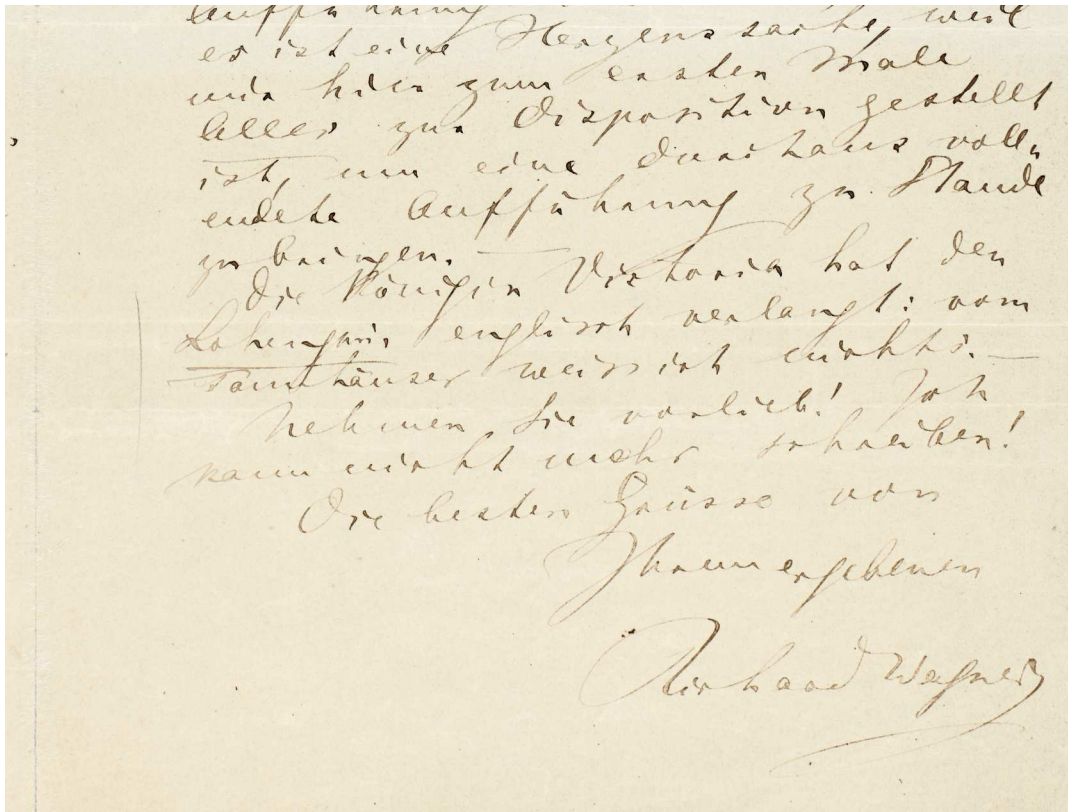 Aufführung
es ist eine Herzenssache, weil
mir hier zum ersten Male
Alles zur Disposition gestellt
ist, um eine durchaus voll-
endete Aufführung zu Stande
zu bringen. —
Die Königin Victoria hat den
Lohengrin englisch verlangt: vom
Tannhäuser weiss ich nichts. —
Nehmen Sie vorlieb! Ich
kann nicht mehr schreiben!
Die besten Grüsse von
Ihrem ergebenen
Richard Wagner